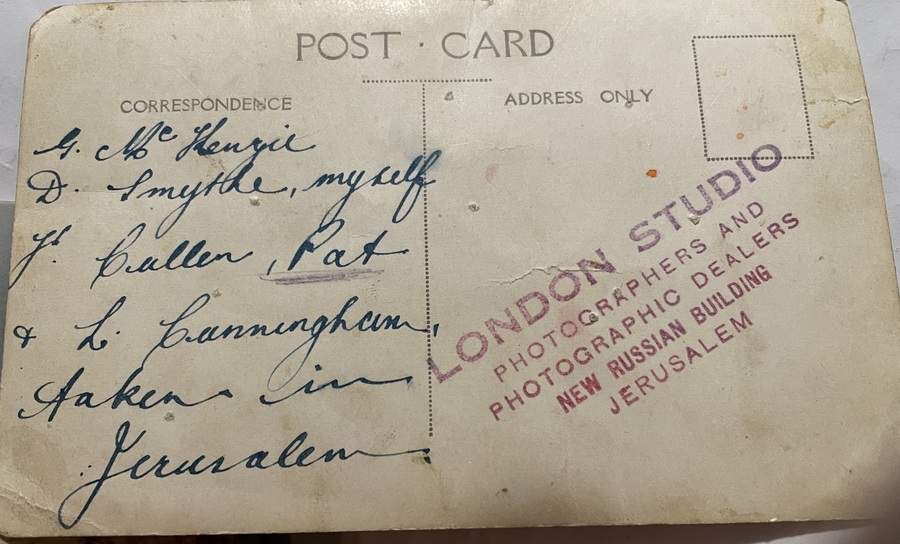 POST · CARD
CORRESPONDENCE
G. McKenzie
D. Smythe, myself
Cullen, Pat
& L. Cunningham,
Taken in
Jerusalem.
ADDRESS ONLY
LONDON STUDIO
PHOTOGRAPHERS AND
PHOTOGRAPHIC DEALERS
NEW RUSSIAN BUILDING
JERUSALEM